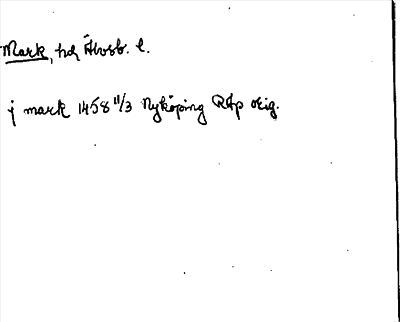 Mark, hd, Ålvsb. l.
j mark 1458 11/3 Nyköping RAp orig.